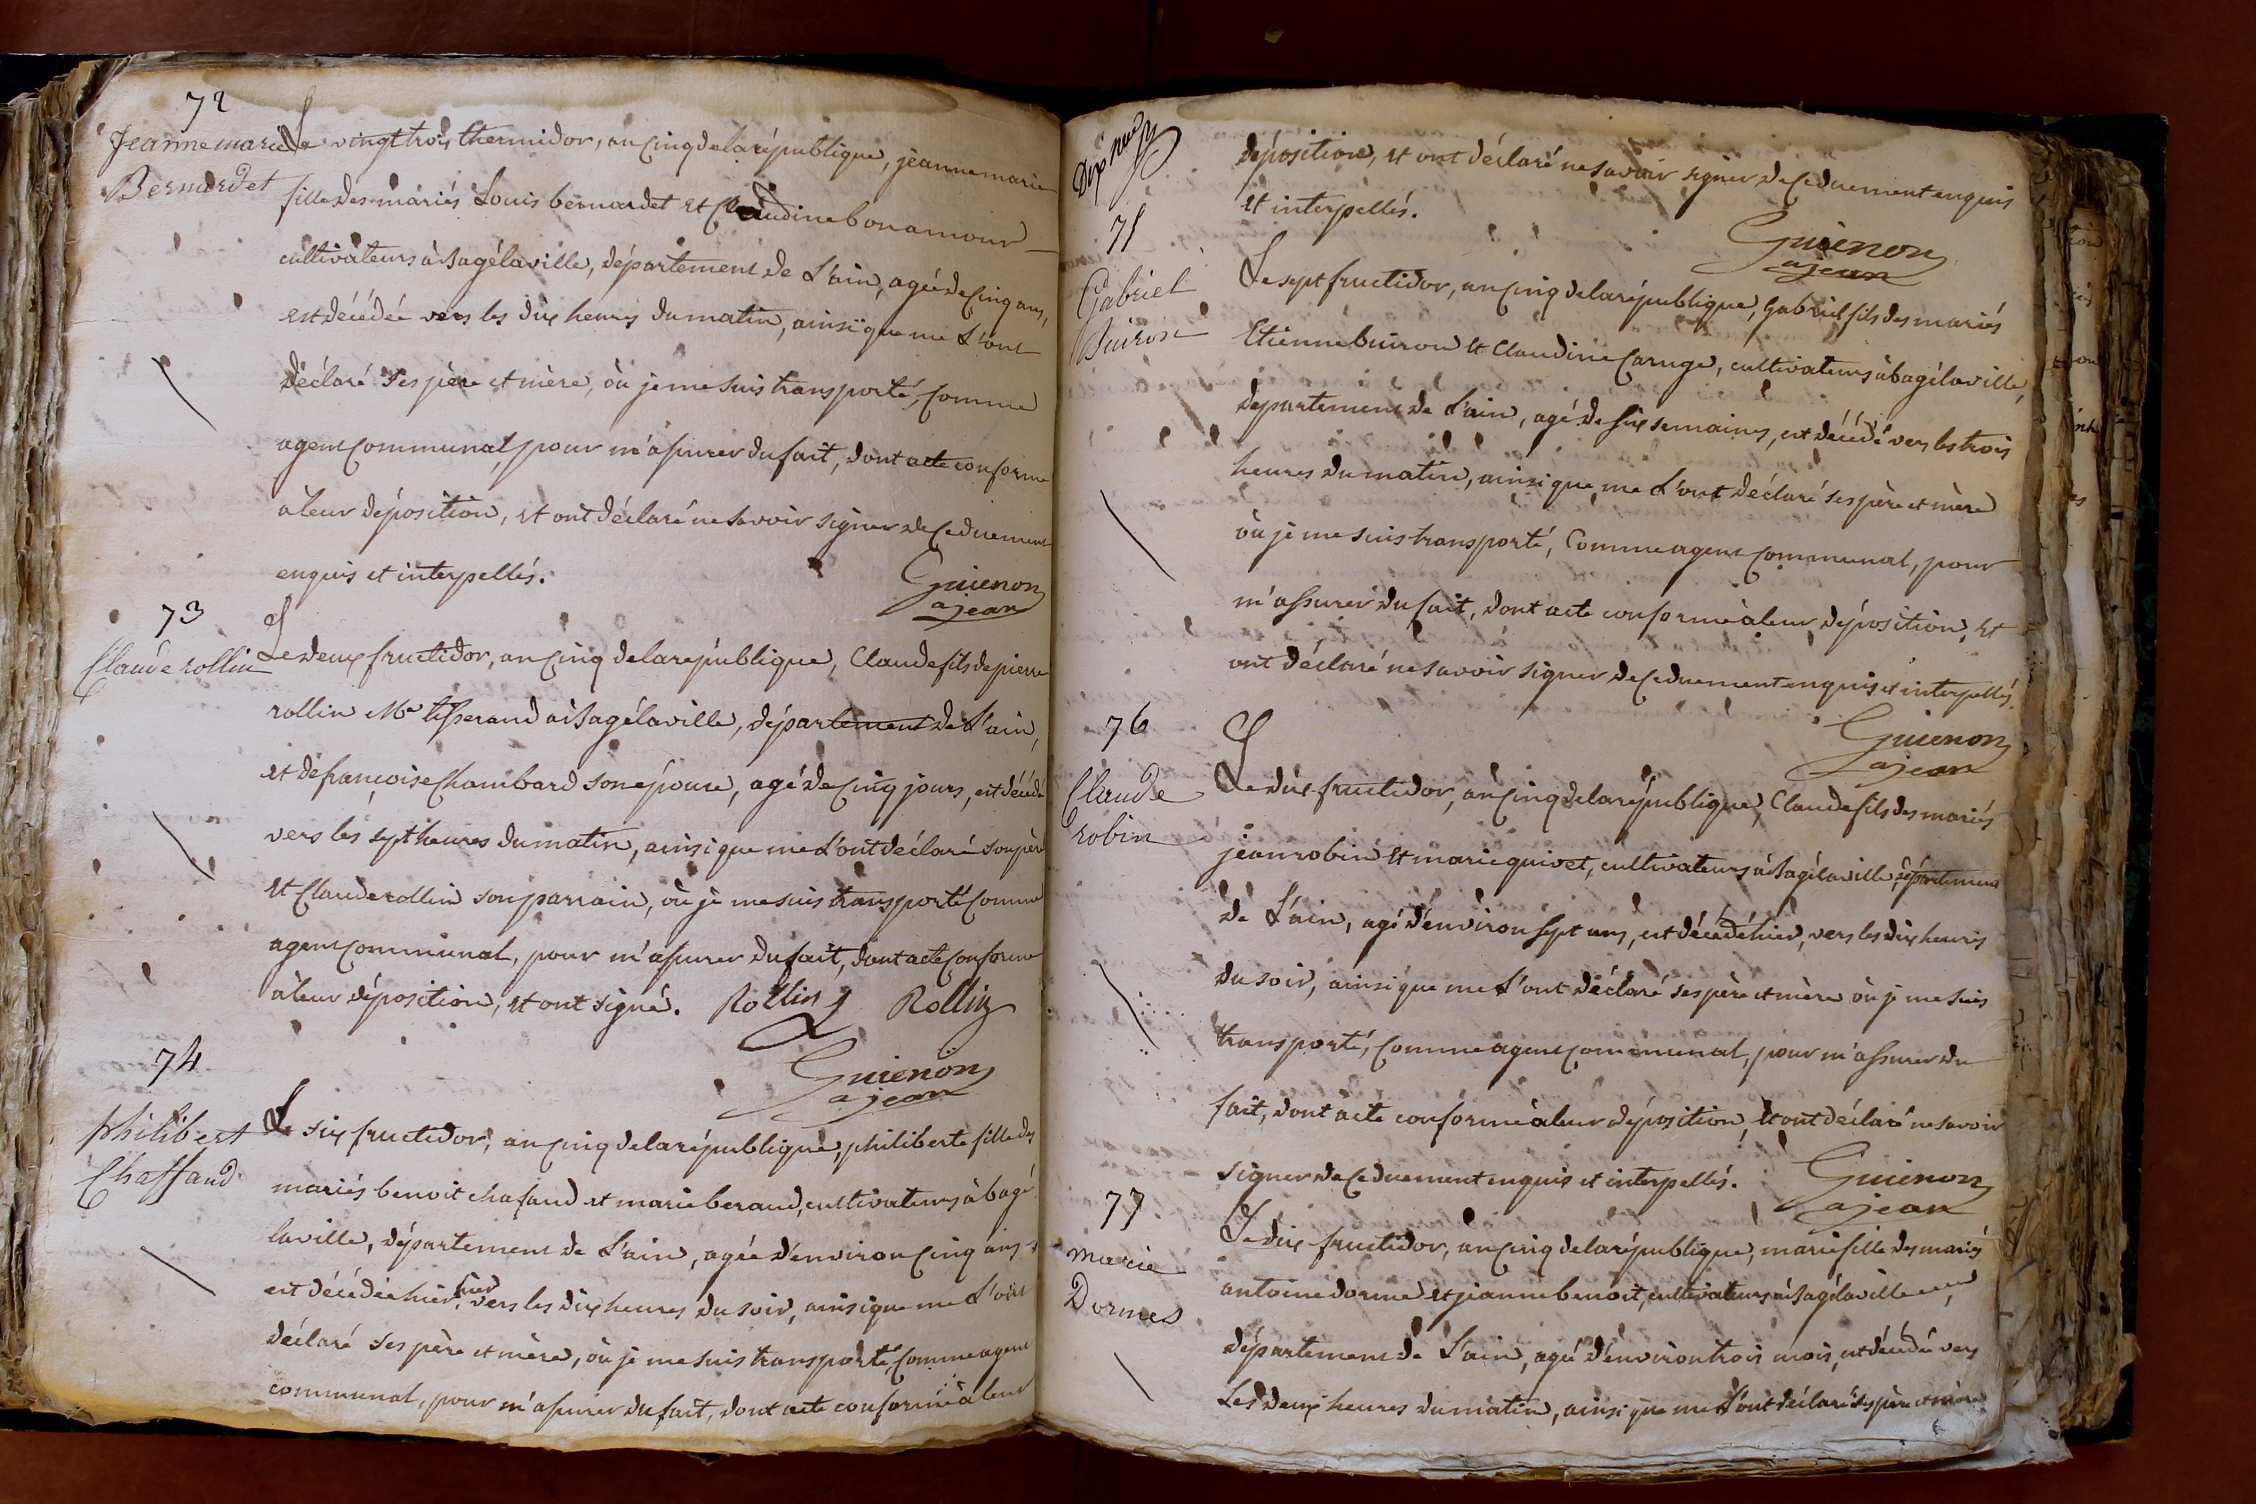 72
Jeanne marie
Bernardet
Le vingt trois thermidor, an cinq de la république, jeanne marie
fille des mariés Louis bernardet et Claudine bonamour
cultivateurs à bagélaville, département de L'ain, agée de cinq ans,
est décédée vers les dix heures du matin, ainsi que me L'ont
déclaré ses père et mère, où je me suis transporté, comme
agent communal, pour m'assurer du fait, dont acte conforme
à leur déposition, et ont déclaré ne savoir signer de ce duement
enquis et interpellés.
Guienon
a jean
73
Claude rollin
Le deux fructidor, an cinq de la république, Claude fils de pierre
rollin Me tisserand à bagélaville, département de L'ain,
et de françoise Chambard son épouse, agé de cinq jours, est décédé
vers les sept heures du matin, ainsi que me L'ont déclaré son père
et Claude rollin son parrain, où je me suis transporté comme
agent communal, pour m'assurer du fait, dont acte conforme
à leur déposition, et ont signé. Rollin Rollin
Guienon
a jean
74
philibert
Chaffaud
Le six fructidor, an cinq de la république, philiberte fille des
mariés benoit chafaud et marie beraud, cultivateurs à bagé
laville, département de L'ain, agée d'environ cinq ans
est décédée hier, hier vers les dix heures du soir, ainsi que me L'ont
déclaré ses père et mère, où je me suis transporté, comme agent
communal, pour m'assurer du fait, dont acte conforme à leur
Dix neuf
déposition, et ont déclaré ne savoir signer de ce duement enquis
et interpellés.
Guienon
a jean
75
Gabriel
Buiron
Le sept fructidor, an cinq de la république, Gabriel fils des mariés
Etienne buiron et Claudine Caruge, cultivateurs à bagélaville,
département de L'ain, agé de six semaines, est décédé vers les trois
heures du matin, ainsi que me L'ont déclaré ses père et mère
où je me suis transporté, Comme agent communal, pour
m'assurer du fait, dont acte conforme à leur déposition, et
ont déclaré ne savoir signer de ce duement enquis et interpellés.
Guienon
a jean
76
Claude
robin
Le dix fructidor, an cinq de la république, Claude fils des mariés
jean robin et marie quivet, cultivateurs à bagélaville, département
de L'ain, agé d'environ sept ans, est décédé hier, vers les dix heures
du soir, ainsi que me L'ont déclaré ses père et mère où je me suis
transporté, comme agent communal, pour m'assurer du
fait, dont acte conforme à leur déposition, et ont déclaré ne savoir
signer de ce duement enquis et interpellés.
Guienon
a jean
77
marie
Dormes
Le dix fructidor, an cinq de la république, marie fille des mariés
antoine dorme et jeanne benoit, cultivateurs à bagélaville
département de L'ain, agée d'environ trois mois, est décédée vers
les deux heures du matin, ainsi que me L'ont déclaré ses père et mère